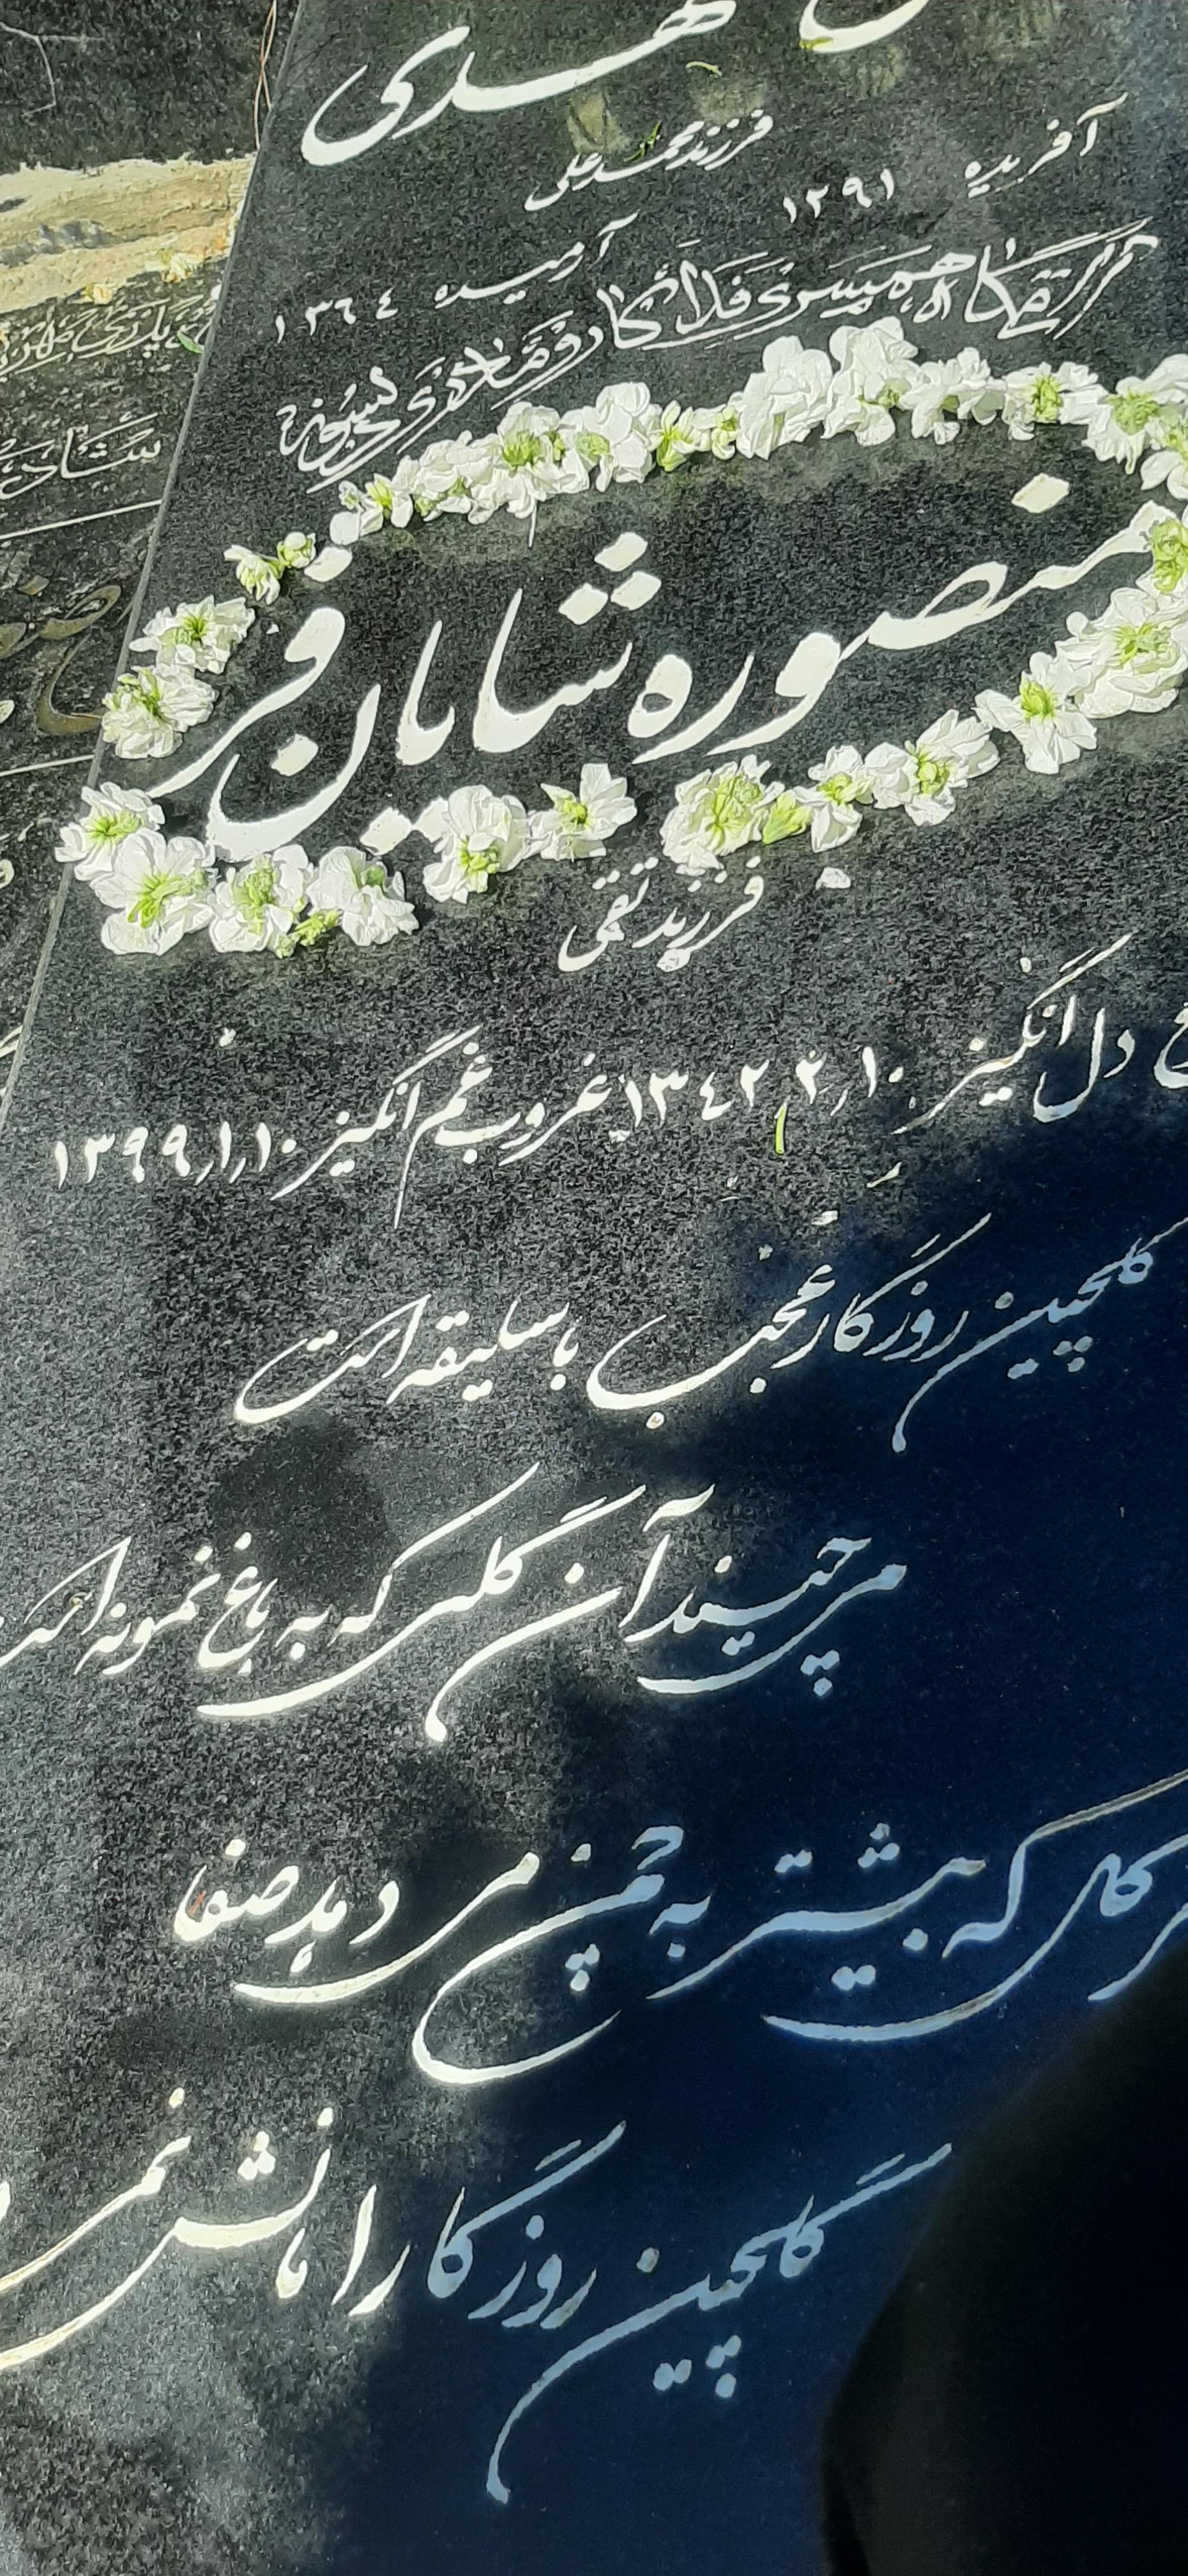 فرزند محمدعلی
آفریده ۱۲۹۱
آرمیده ۱۳٦٤
آرامگاه همسری فداکار و مادری دلسوز
منصوره شایان فر
فرزند تقی
دل انگیز ۱۳٤۲٫۲٫۱۰ غروب غم انگیز ۱۳۹۹٫۱٫۱۰
گلچین روزگار عجب با سلیقه است
می چیند آن گلی که به باغ نمونه است
گلی که بیشتر به چمن می دهد صفا
گلچین روزگار امانش نمی